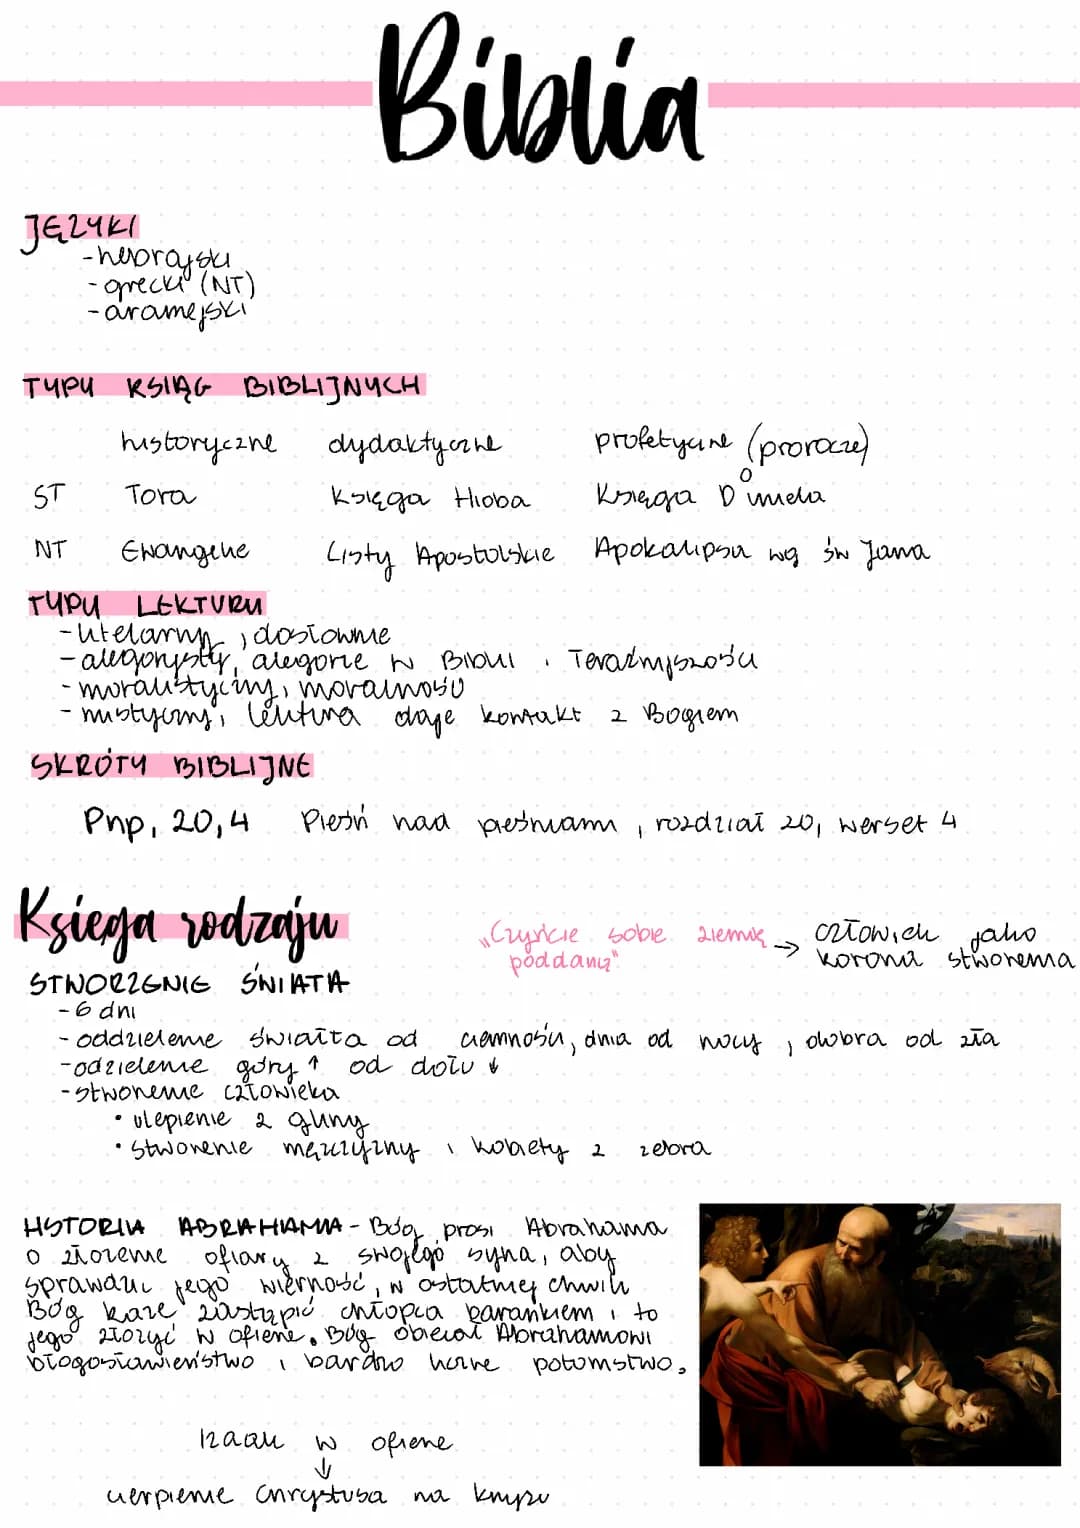 Biblia
JĘZYKI
-hebrajski
-grecki (NT)
-aramejski
TYPY KSIĄG BIBLIJNYCH
historyczne dydaktyczne profetyczne (prorocze)
ST Tora Księga Hioba Księga Daniela
NT Ewangelie Listy Apostolskie Apokalipsa wg św Jana
TYPY LEKTURY
-literarny, dosłownie
-alegorysty, alegorie w Biblii i Teraźniejszości
-moralistyczny, moralność
-mistyczny, lektura daje kontakt z Bogiem
SKRÓTY BIBLIJNE
Pnp, 20,4 Pieśń nad pieśniami, rozdział 20, werset 4
Księga rodzaju
„Czyńcie sobie ziemię poddaną" → człowiek jako korona stworzenia
STWORZENIE ŚWIATA
-6 dni
-oddzielenie światła od ciemności, dnia od nocy, dobra od zła
-odzielenie góry ↑ od dołu ↓
-stworzenie człowieka
• ulepienie z gliny
• stworzenie mężczyzny i kobiety z żebra
HISTORIA ABRAHAMA - Bóg prosi Abrahama
o złożenie ofiary z swojego syna, aby
sprawdzić jego wierność, w ostatniej chwili
Bóg każe zastąpić chłopca barankiem i to
jego złożyć w ofierze. Bóg obiecał Abrahamowi
błogosławieństwo i bardzo liczne potomstwo.
Izaak w ofierze
↓
cierpienie Chrystusa na krzyżu